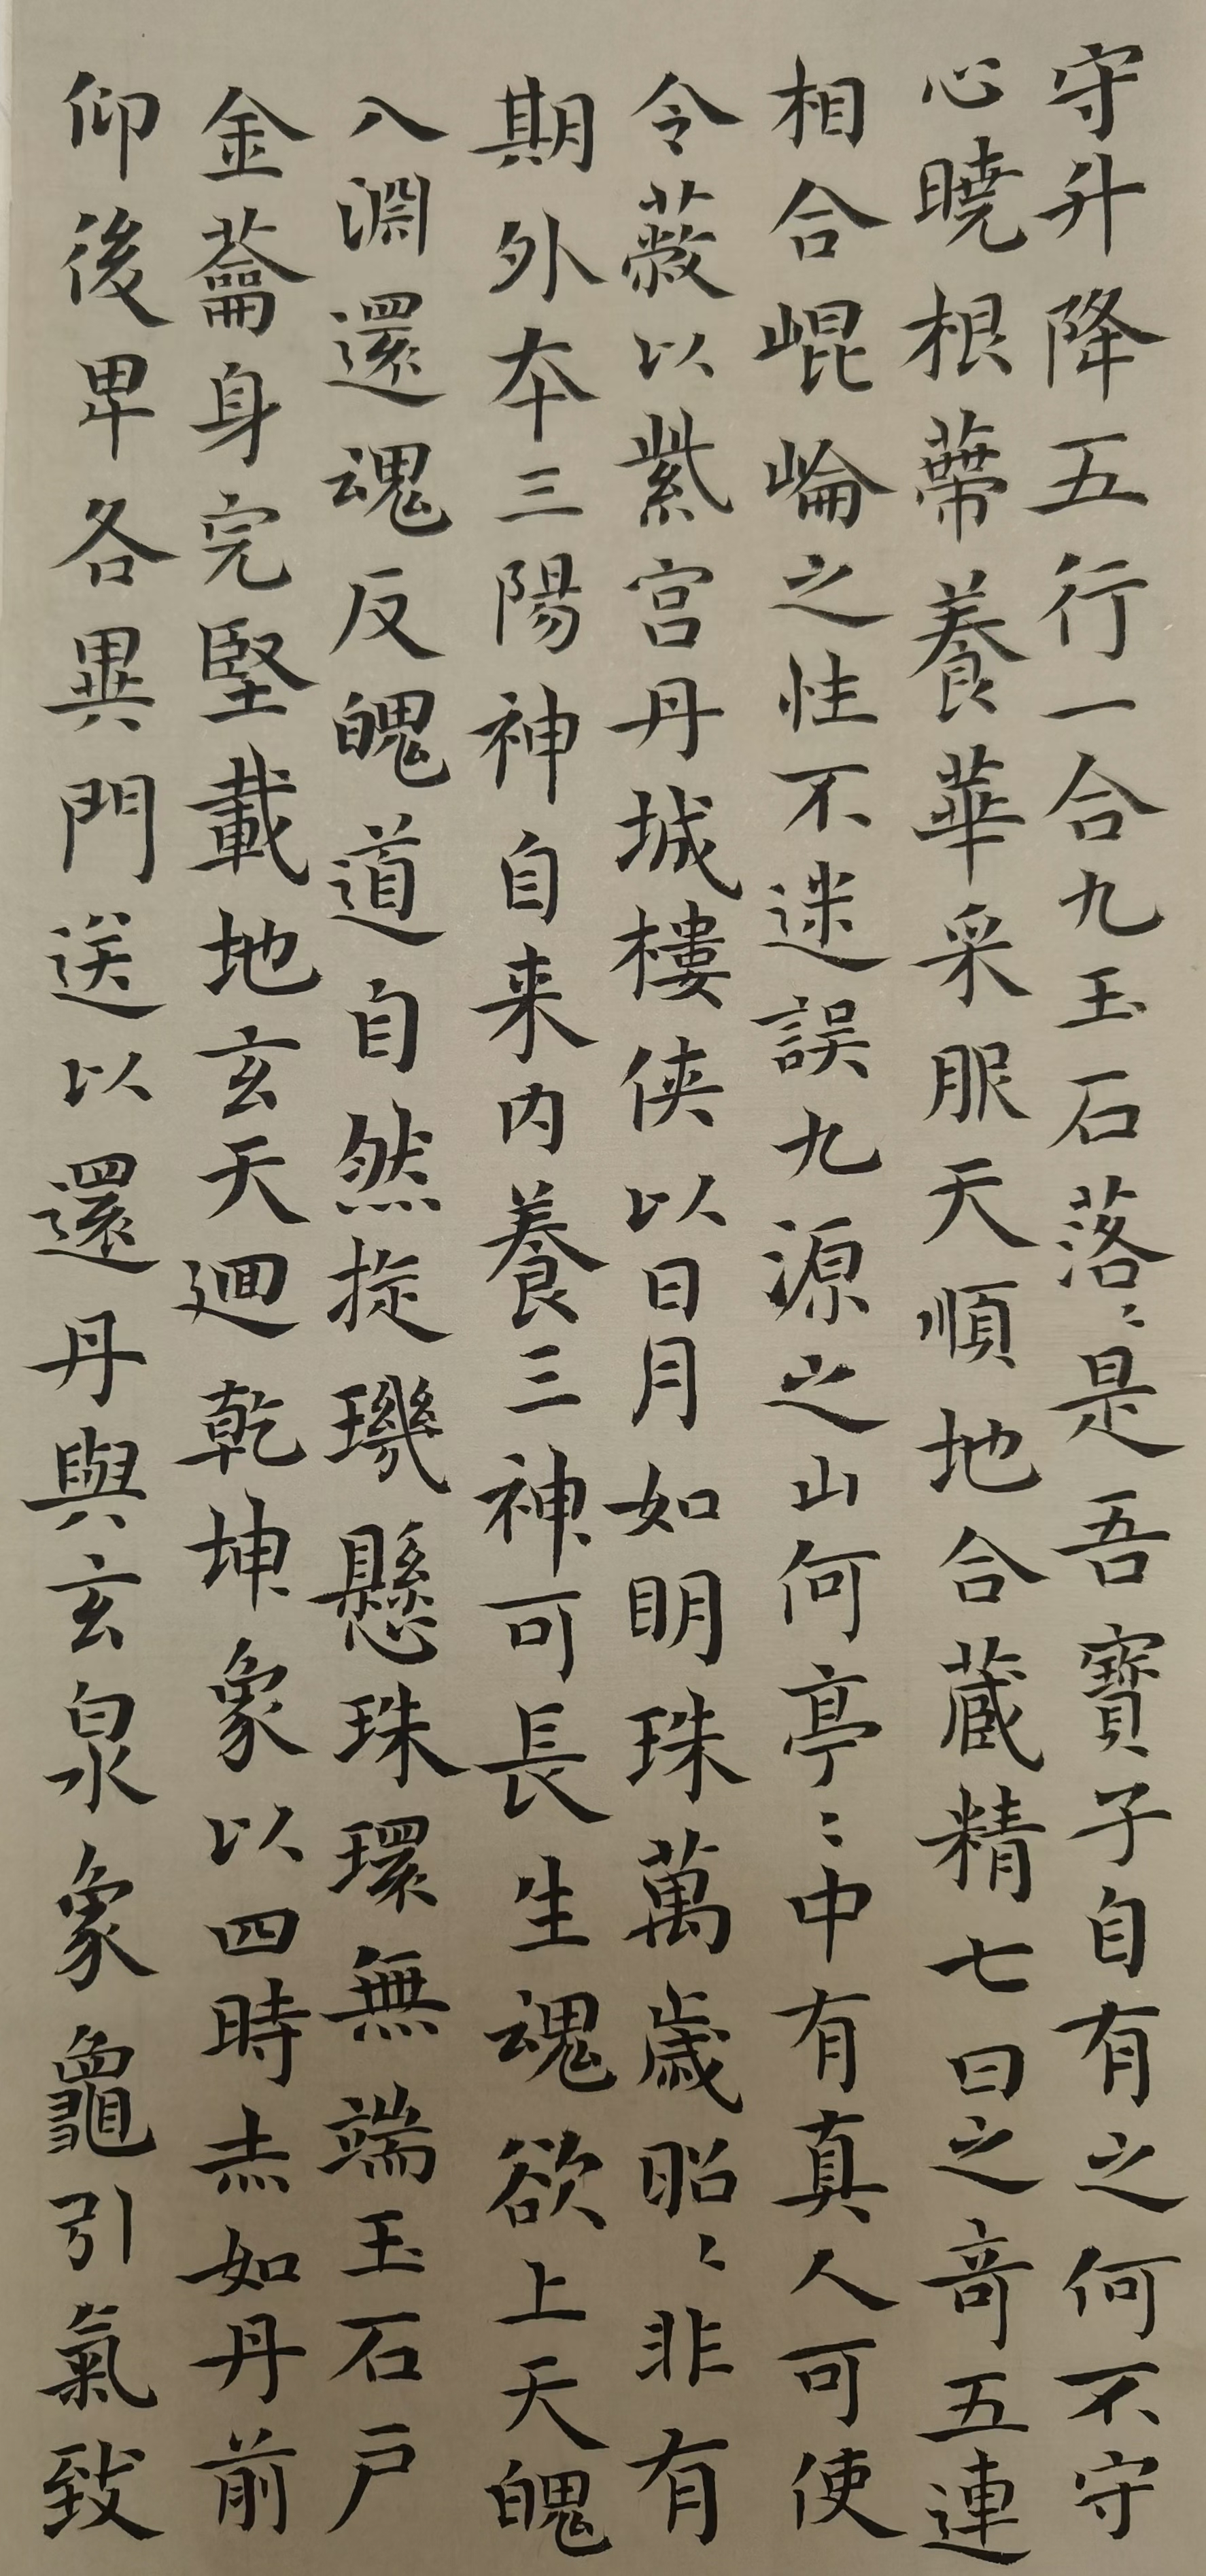 守升降五行一合九玉石落〻是吾寶子自有之何不守
心曉根蔕養華采服天順地合藏精七日之奇五連
相合崐崘之性不迷誤九源之山何亭〻中有真人可使
令蔽以紫宮丹城樓俠以日月如明珠萬歲昭〻非有
期外本三陽神自来内養三神可長生魂欲上天魄
入淵還魂反魄道自然㨔璣懸珠環無端玉石戶
金蘥身完堅載地玄天迴乾坤象以四時赤如丹前
仰後卑各異門送以還丹與玄泉象龜引氣致